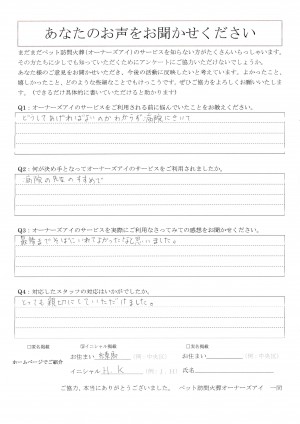 あなたのお声をお聞かせください
まだまだペット訪問火葬(オーナーズアイ)のサービスを知らない方がたくさんいらっしゃいます。
その方たちに少しでも知っていただくためにアンケートにご協力いただけないでしょうか。
あなた様のご意見をお聞かせいただき、今後の活動に反映したいと考えています。よかったこと、
嬉しかったこと、どのような些細なことでもけっこうです。ぜひご協力をよろしくお願いいたしま
す。(できるだけ具体的に書いていただけると助かります)
Q1：オーナーズアイのサービスをご利用される前に悩んでいたことをお教えください。
どうしてあげればよいのかわからず病院にきいて
Q2：何が決め手となってオーナーズアイのサービスをご利用されましたか。
病院の先生のすすめで
Q3：オーナーズアイのサービスを実際にご利用なさってみての感想をお聞かせください。
最後までそばにいれてよかったなと思いました。
Q4：対応したスタッフの対応はいかがでしたか。
とっても親切にしていただけました。
□匿名掲載 ☑イニシャル掲載 □実名掲載
ホームページでご紹介
お住まい (例：中央区) お住まい (例：中央区)
イニシャル H.K (例：) 氏名
ご協力、本当にありがとうございました。 ペット訪問火葬オーナーズアイ 一同